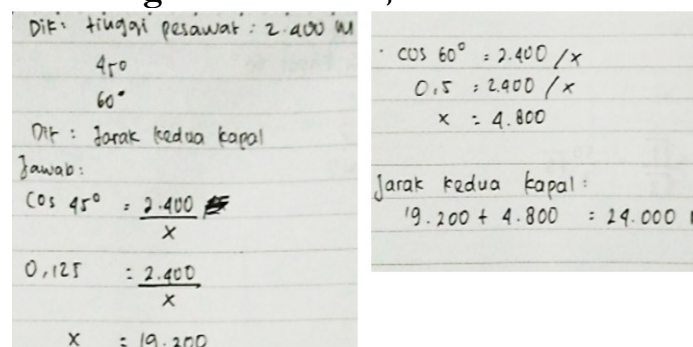 Dik: tinggi pesawat : 2.400 m
45°
60°
Dit : Jarak kedua kapal
Jawab:
Cos 45° = 2.400
x
0,125 = 2.400
x
x = 19.200
cos 60° = 2.400 / x
0,5 = 2.400 / x
x = 4.800
Jarak kedua kapal :
19.200 + 4.800 = 24.000